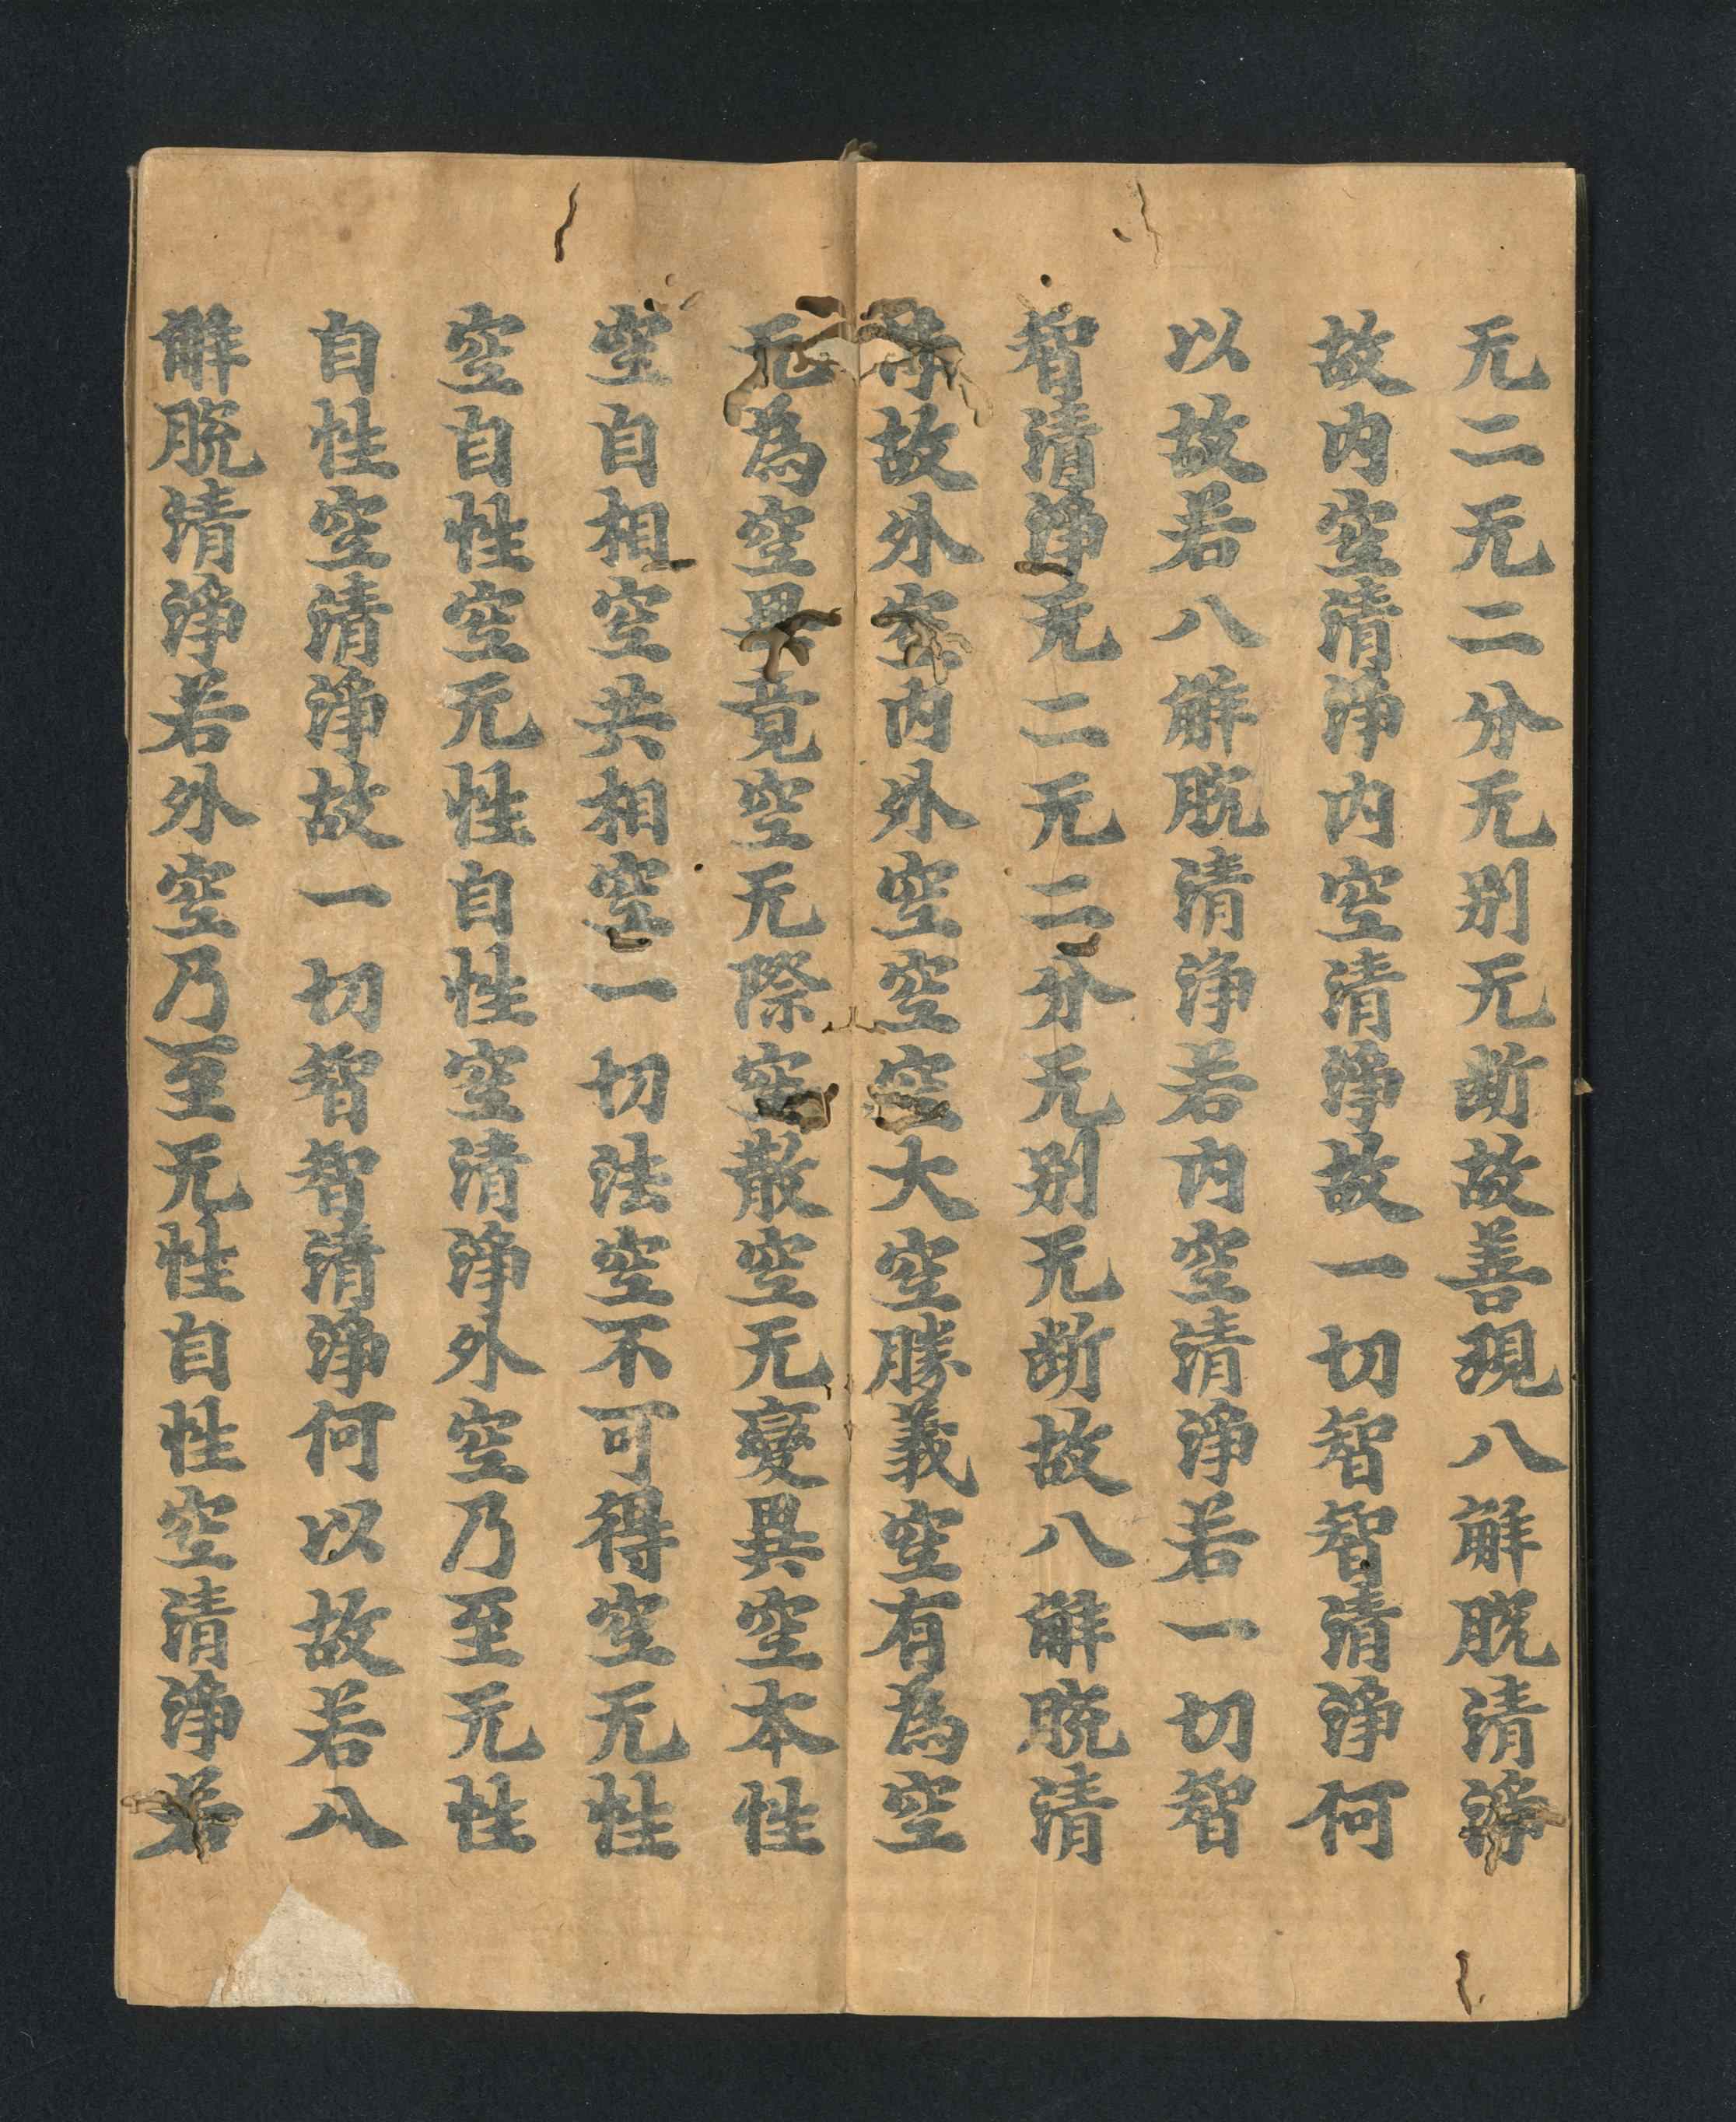 无二无二分无别无断故善現八解脱清淨
故内空清淨内空清淨故一切智智清淨何
以故若八解脱清淨若内空清淨若一切智
智清淨无二无二分无别无断故八解脱清
淨故外空内外空空空大空勝義空有為空
无為空畢竟空无際空散空无變異空本性
空自相空共相空一切法空不可得空无性
空自性空无性自性空清淨外空乃至无性
自性空清淨故一切智智清淨何以故若八
解脱清淨若外空乃至无性自性空清淨若